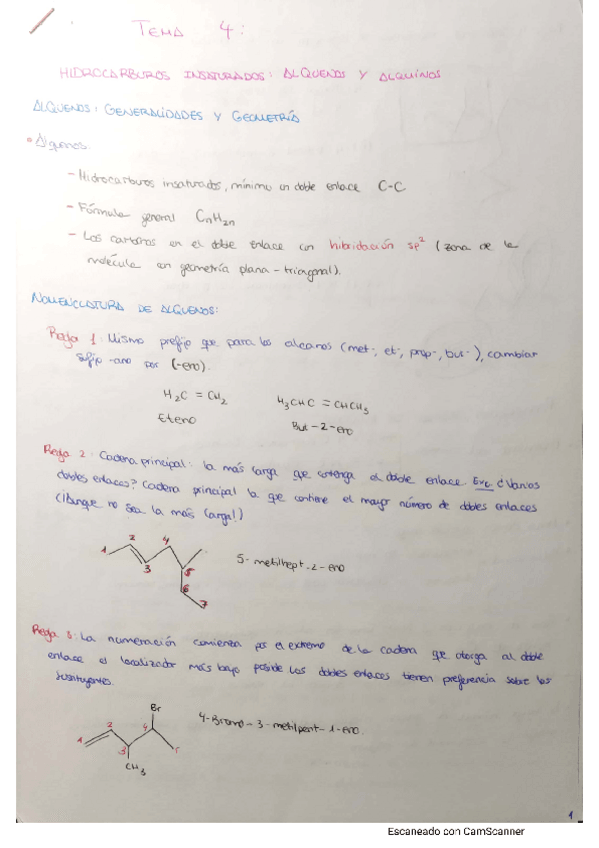 TEMA 4:
HIDROCARBUROS INSATURADOS: ALQUENOS Y ALQUINOS
ALQUENOS: GENERALIDADES Y GEOMETRÍA
Alquenos
- Hidrocarburos insaturados, mínimo un doble enlace C-C
- Fórmula general CnH2n
- Los carbonos en el doble enlace con hibridación sp² (zona de la
molécula con geometría plana-triagonal).
NOMENCLATURA DE ALQUENOS:
Regla 1: Mismo prefijo que para los alcanos (met-, et-, prop-, but-), cambiar
sufijo -ano por (-eno).
H2C = CH2
H3CHC = CHCH3
Eteno
But-2-eno
Regla 2: Cadena principal: la más larga que contenga el doble enlace Exc ¿Varios
dobles enlaces? Cadena principal la que contiene el mayor número de dobles enlaces
(¡Aunque no sea la más larga!)
1 2 3 4 5 6 7
5-metilhept-2-eno
Regla 3: La numeración comienza por el extremo de la cadena que otorga al doble
enlace el localizador más bajo posible los dobles enlaces tienen preferencia sobre los
sustituyentes.
Br
1 2 3 4 5
CH3
4-Bromo-3-metilpent-1-eno.
1
Escaneado con CamScanner